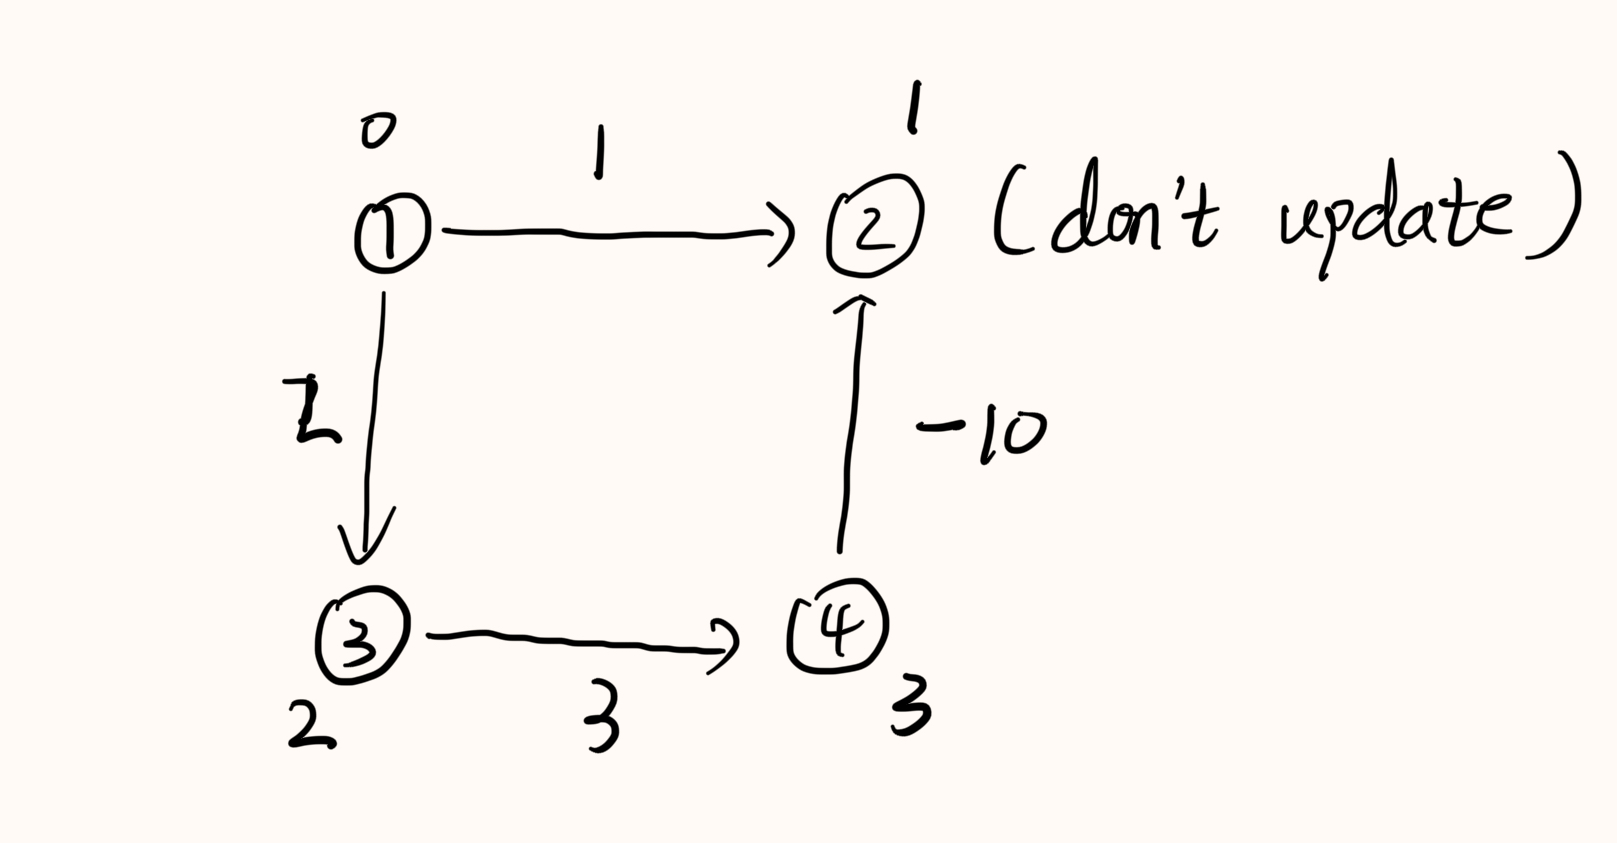 0 1 1
1 2 (don't update)
2 -10
3 4
2 3 3